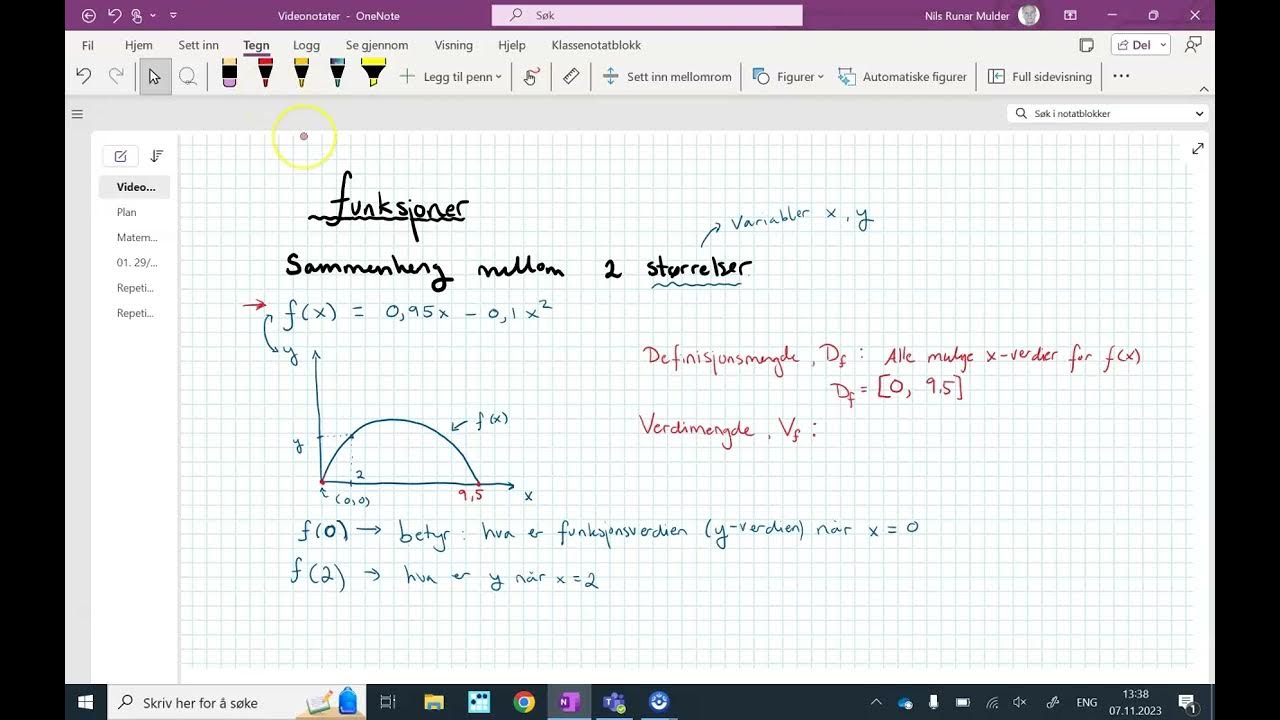 Videonotater - OneNote
Søk
Nils Runar Mulder
Fil Hjem Sett inn Tegn Logg Se gjennom Visning Hjelp Klassenotatblokk
Del
Legg til penn
Sett inn mellomrom
Figurer
Automatiske figurer
Full sidevisning
Søk i notatblokker
Video...
Plan
Matem...
01. 29/...
Repeti...
Repeti...
Funksjoner
Variabler x, y
Sammenheng mellom 2 størrelser
f(x) = 0,95x - 0,1x²
y
Definisjonsmengde, Df : Alle mulige x-verdier for f(x)
Df = [0, 9,5]
f(x)
Verdimengde, Vf :
y
2
(0,0)
9,5
x
f(0) → betyr: hva er funksjonsverdien (y-verdien) når x = 0
f(2) → hva er y når x = 2
Skriv her for å søke
ENG
13:38
07.11.2023
1